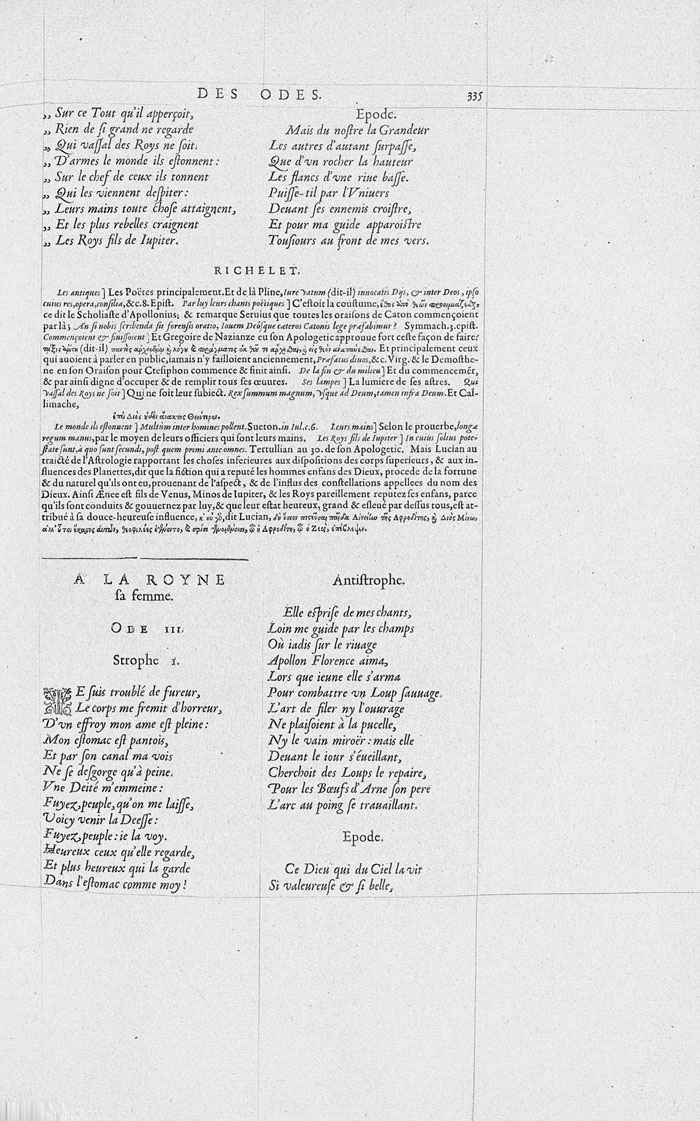 DES ODES. 335
„ Sur ce Tout qu'il apperçoit,
„ Rien de ſi grand ne regarde
„ Qui vaſſal des Roys ne ſoit.
„ D'armes le monde ils eſtonnent:
„ Sur le chef de ceux ils tonnent
„ Qui les viennent deſpiter:
„ Leurs mains toute choſe attaignent,
„ Et les plus rebelles craignent
„ Les Roys fils de Iupiter.
Epode.
Mais du noſtre la Grandeur
Les autres d'autant ſurpaſſe,
Que d'vn rocher la hauteur
Les flancs d'vne riue baſſe.
Puiſſe-til par l'Vniuers
Deuant ſes ennemis croiſtre,
Et pour ma guide apparoiſtre
Touſiours au front de mes vers.
RICHELET.
Les antiques] Les Poëtes principalement. Et de là Pline, Iure vatum (dit-il) inuocatis Dijs, & inter Deos, ipſo
cuius res, opera, conſilia, &c. 8. Epiſt. Par luy leurs chants poëtiques] C'eſtoit la couſtume,
ce dit le Scholiaſte d'Apollonius; & remarque Seruius que toutes les oraiſons de Caton commençoient
par là; An ſi nobis ſcribenda ſit forenſis oratio, Iouem Deóſque cæteros Catonis lege præfabimur? Symmach. 3. epiſt.
Commençoient & finiſſoient] Et Gregoire de Nazianze en ſon Apologetic approuue fort ceſte façon de faire:
(dit-il) Et principalement ceux
qui auoient à parler en public, iamais n'y failloient anciennement, Præfatus diuos, &c. Virg. & le Demoſthe-
ne en ſon Oraiſon pour Cteſiphon commence & finit ainſi. De la fin & du milieu] Et du commencemét,
& par ainſi digne d'occuper & de remplir tous ſes œuures. Ses lampes] La lumiere de ſes aſtres. Qui
vaſſal des Roys ne ſoit] Qui ne ſoit leur ſubiect. Rex ſummum magnum, vſque ad Deum, tamen infra Deum. Et Cal-
limache,
Le monde ils eſtonnent] Multùm inter homines pollent. Sueton. in Iul. c. 6. Leurs mains] Selon le prouerbe, longæ
regum manus, par le moyen de leurs officiers qui ſont leurs mains. Les Roys fils de Iupiter] In cuius ſolius pote-
ſtate ſunt, à quo ſunt ſecundi, poſt quem primi ante omnes. Tertullian au 30. de ſon Apologetic. Mais Lucian au
traicté de l'Aſtrologie rapportant les choſes inferieures aux diſpoſitions des corps ſuperieurs, & aux in-
fluences des Planettes, dit que la fiction qui a reputé les hommes enfans des Dieux, procede de la fortune
& du naturel qu'ils ont eu, prouenant de l'aſpect, & de l'influs des conſtellations appellees du nom des
Dieux. Ainſi Ænee eſt fils de Venus, Minos de Iupiter, & les Roys pareillement reputez ſes enfans, parce
qu'ils ſont conduits & gouuernez par luy, & que leur eſtat heureux, grand & eſleué par deſſus tous, eſt at-
tribué à ſa douce-heureuſe influence, dit Lucian,
A LA ROYNE
ſa femme.
ODE III.
Strophe 1.
IE ſuis troublé de fureur,
Le corps me fremit d'horreur,
D'vn effroy mon ame eſt pleine:
Mon eſtomac eſt pantois,
Et par ſon canal ma vois
Ne ſe deſgorge qu'à peine.
Vne Deité m'emmeine:
Fuyez, peuple, qu'on me laiſſe,
Voicy venir la Deeſſe:
Fuyez, peuple: ie la voy.
Heureux ceux qu'elle regarde,
Et plus heureux qui la garde
Dans l'eſtomac comme moy!
Antiſtrophe.
Elle eſpriſe de mes chants,
Loin me guide par les champs
Où iadis ſur le riuage
Apollon Florence aima,
Lors que ieune elle s'arma
Pour combattre vn Loup ſauuage.
L'art de filer ny l'ouurage
Ne plaiſoient à la pucelle,
Ny le vain miroër: mais elle
Deuant le iour s'éueillant,
Cherchoit des Loups le repaire,
Pour les Bœufs d'Arne ſon pere
L'arc au poing ſe trauaillant.
Epode.
Ce Dieu qui du Ciel la vit
Si valeureuſe & ſi belle,